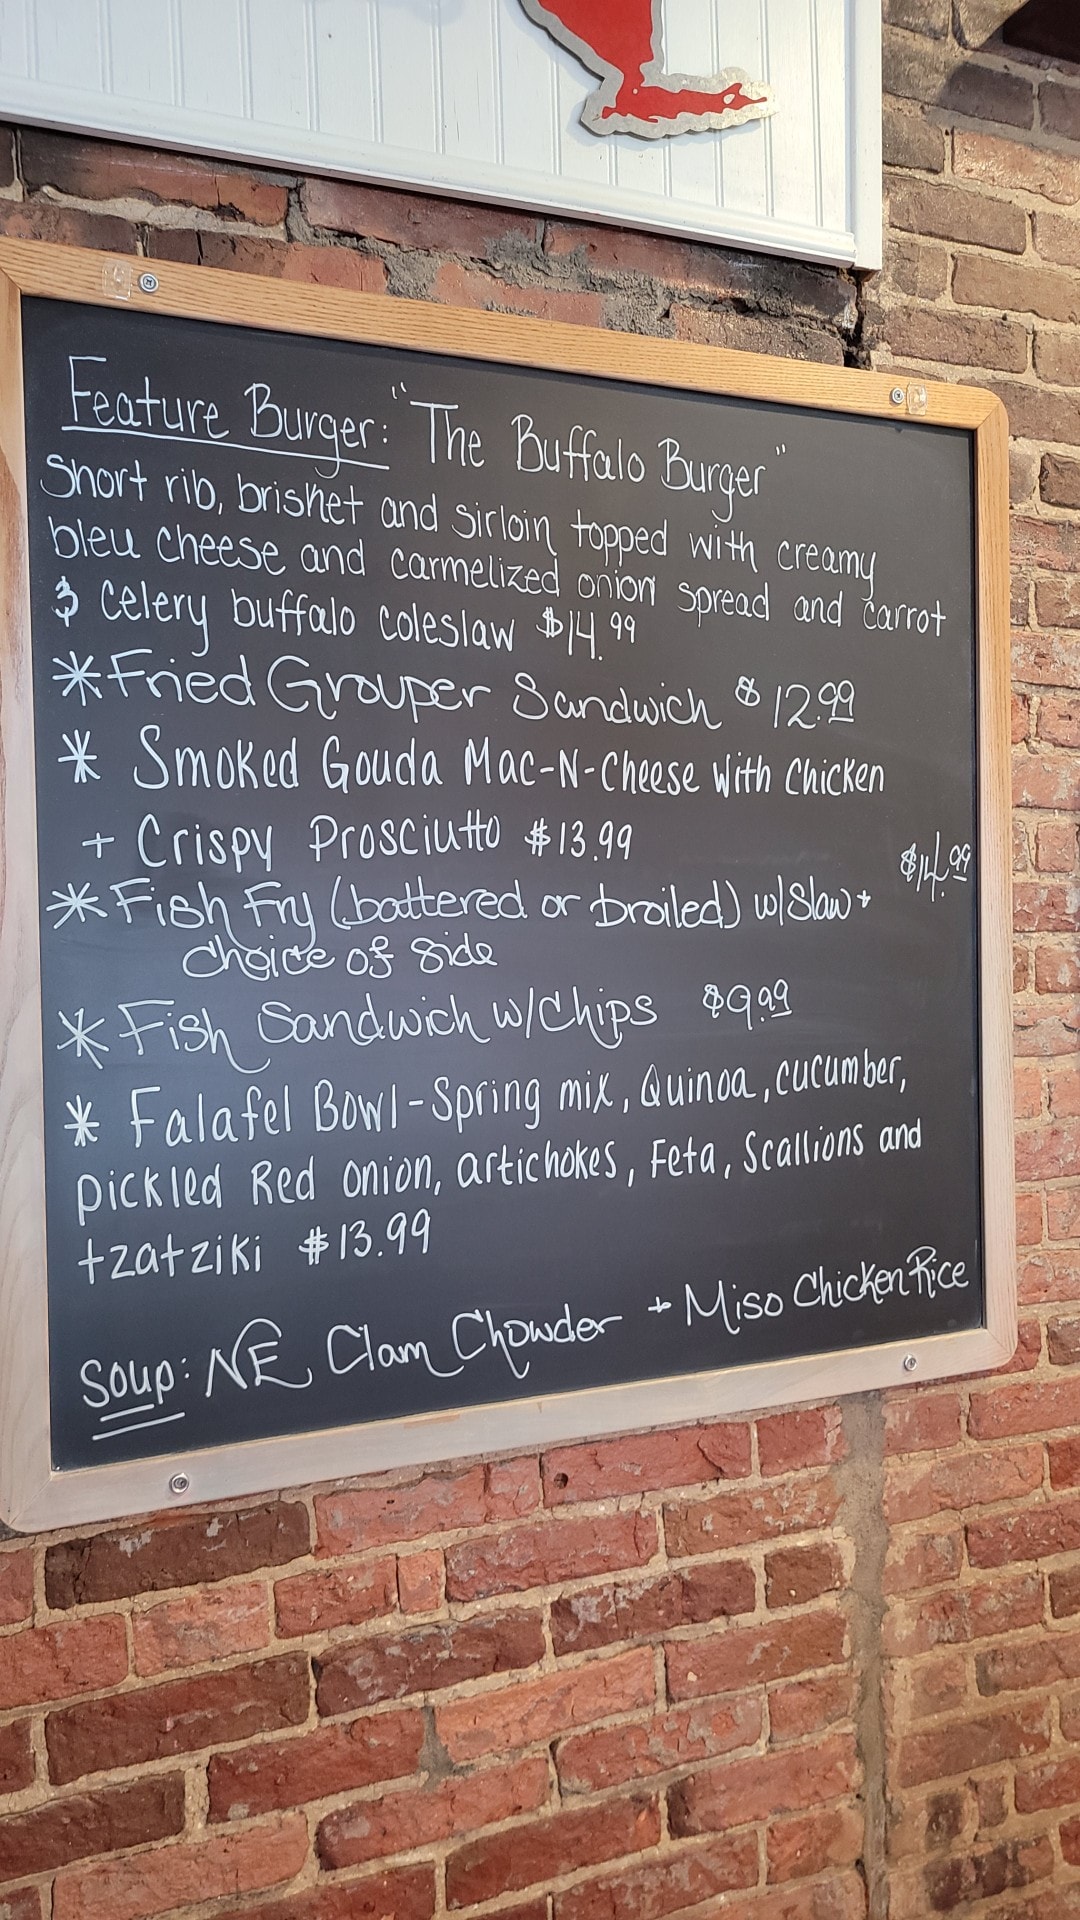 Feature Burger: "The Buffalo Burger"
Short rib, brisket and sirloin topped with creamy
bleu cheese and carmelized onion spread and carrot
& celery buffalo coleslaw $14.99
*Fried Grouper Sandwich $12.99
* Smoked Gouda Mac-N-Cheese with Chicken
+ Crispy Prosciutto $13.99
*Fish Fry (battered or broiled) w/Slaw + $14.99
Choice of Side
*Fish Sandwich w/Chips $9.99
* Falafel Bowl-Spring mix, Quinoa, cucumber,
pickled Red onion, artichokes, Feta, Scallions and
tzatziki $13.99
Soup: NE Clam Chowder + Miso Chicken Rice